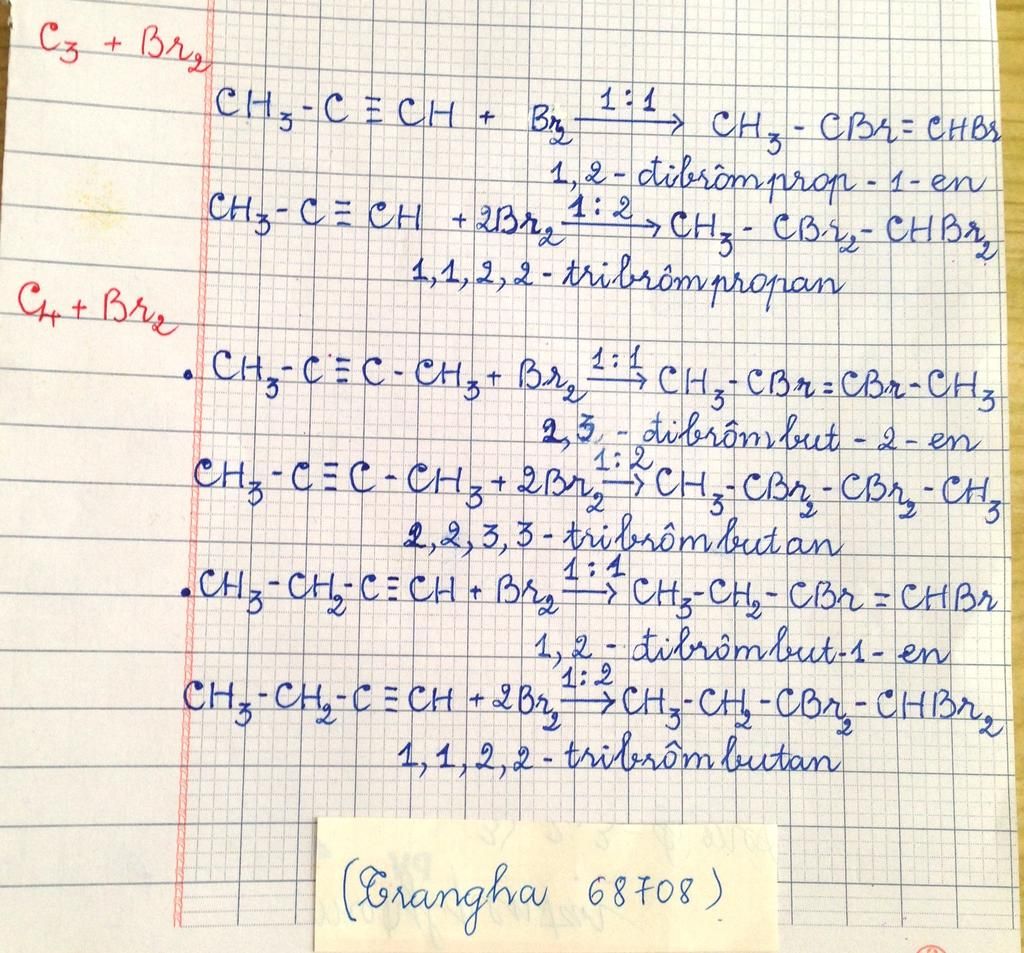 C₃ + Br₂
CH₃ - C ≡ CH + Br₂ —1:1→ CH₃ - CBr = CHBr
1,2 - dibrôm prop - 1 - en
CH₃ - C ≡ CH + 2Br₂ —1:2→ CH₃ - CBr₂ - CHBr₂
1,1,2,2 - tribrôm propan
C₄ + Br₂
• CH₃ - C ≡ C - CH₃ + Br₂ —1:1→ CH₃ - CBr = CBr - CH₃
2,3 - dibrôm but - 2 - en
CH₃ - C ≡ C - CH₃ + 2Br₂ —1:2→ CH₃ - CBr₂ - CBr₂ - CH₃
2,2,3,3 - tribrôm butan
• CH₃ - CH₂ - C ≡ CH + Br₂ —1:1→ CH₃ - CH₂ - CBr = CHBr
1,2 - dibrôm but - 1 - en
CH₃ - CH₂ - C ≡ CH + 2Br₂ —1:2→ CH₃ - CH₂ - CBr₂ - CHBr₂
1,1,2,2 - tribrôm butan
(Trangha 68708)